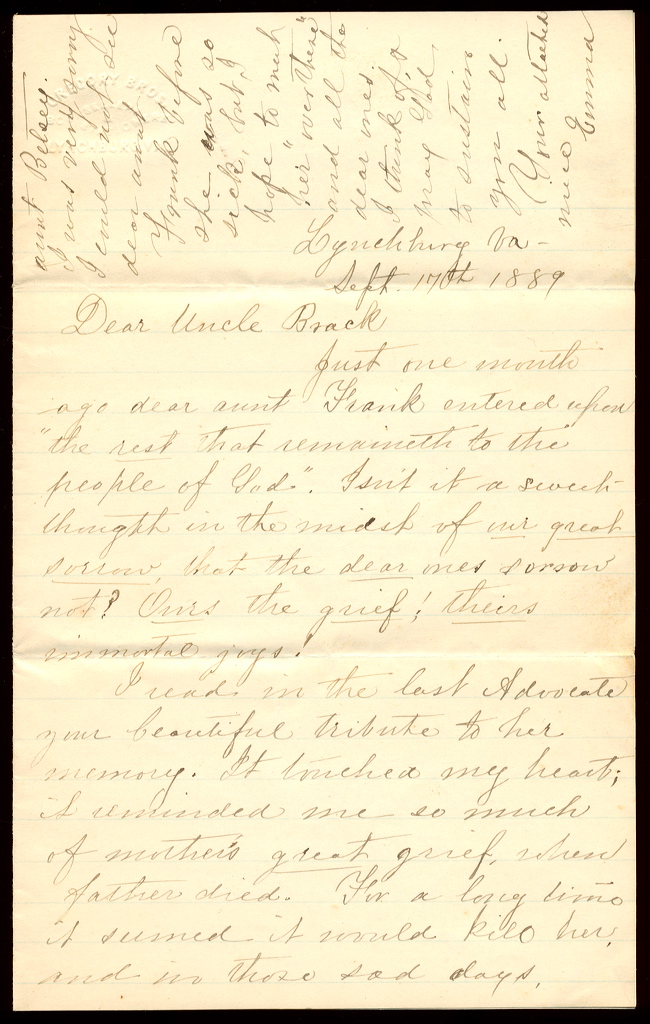 aunt Betsey.
I was very sorry
I could not see
dear aunt
Frank before
she was so
sick, but I
hope to meet
her "over there"
and all the
dear ones.
I think of, &
may God
to sustain
you all.
Your attached
niece Emma
Lynchburg Va -
Sept. 17th 1889
Dear Uncle Brack
Just one month
ago dear aunt Frank entered upon
"the rest that remaineth to the
people of God". Isn't it a sweet
thought in the midst of our great
sorrow, that the dear ones sorrow
not? Ours the grief; theirs
immortal joys!
I read in the last Advocate
your beautiful tribute to her
memory. It touched my heart;
it reminded me so much
of mother's great grief, when
father died. For a long time
it seemed it would kill her,
and in those sad days,